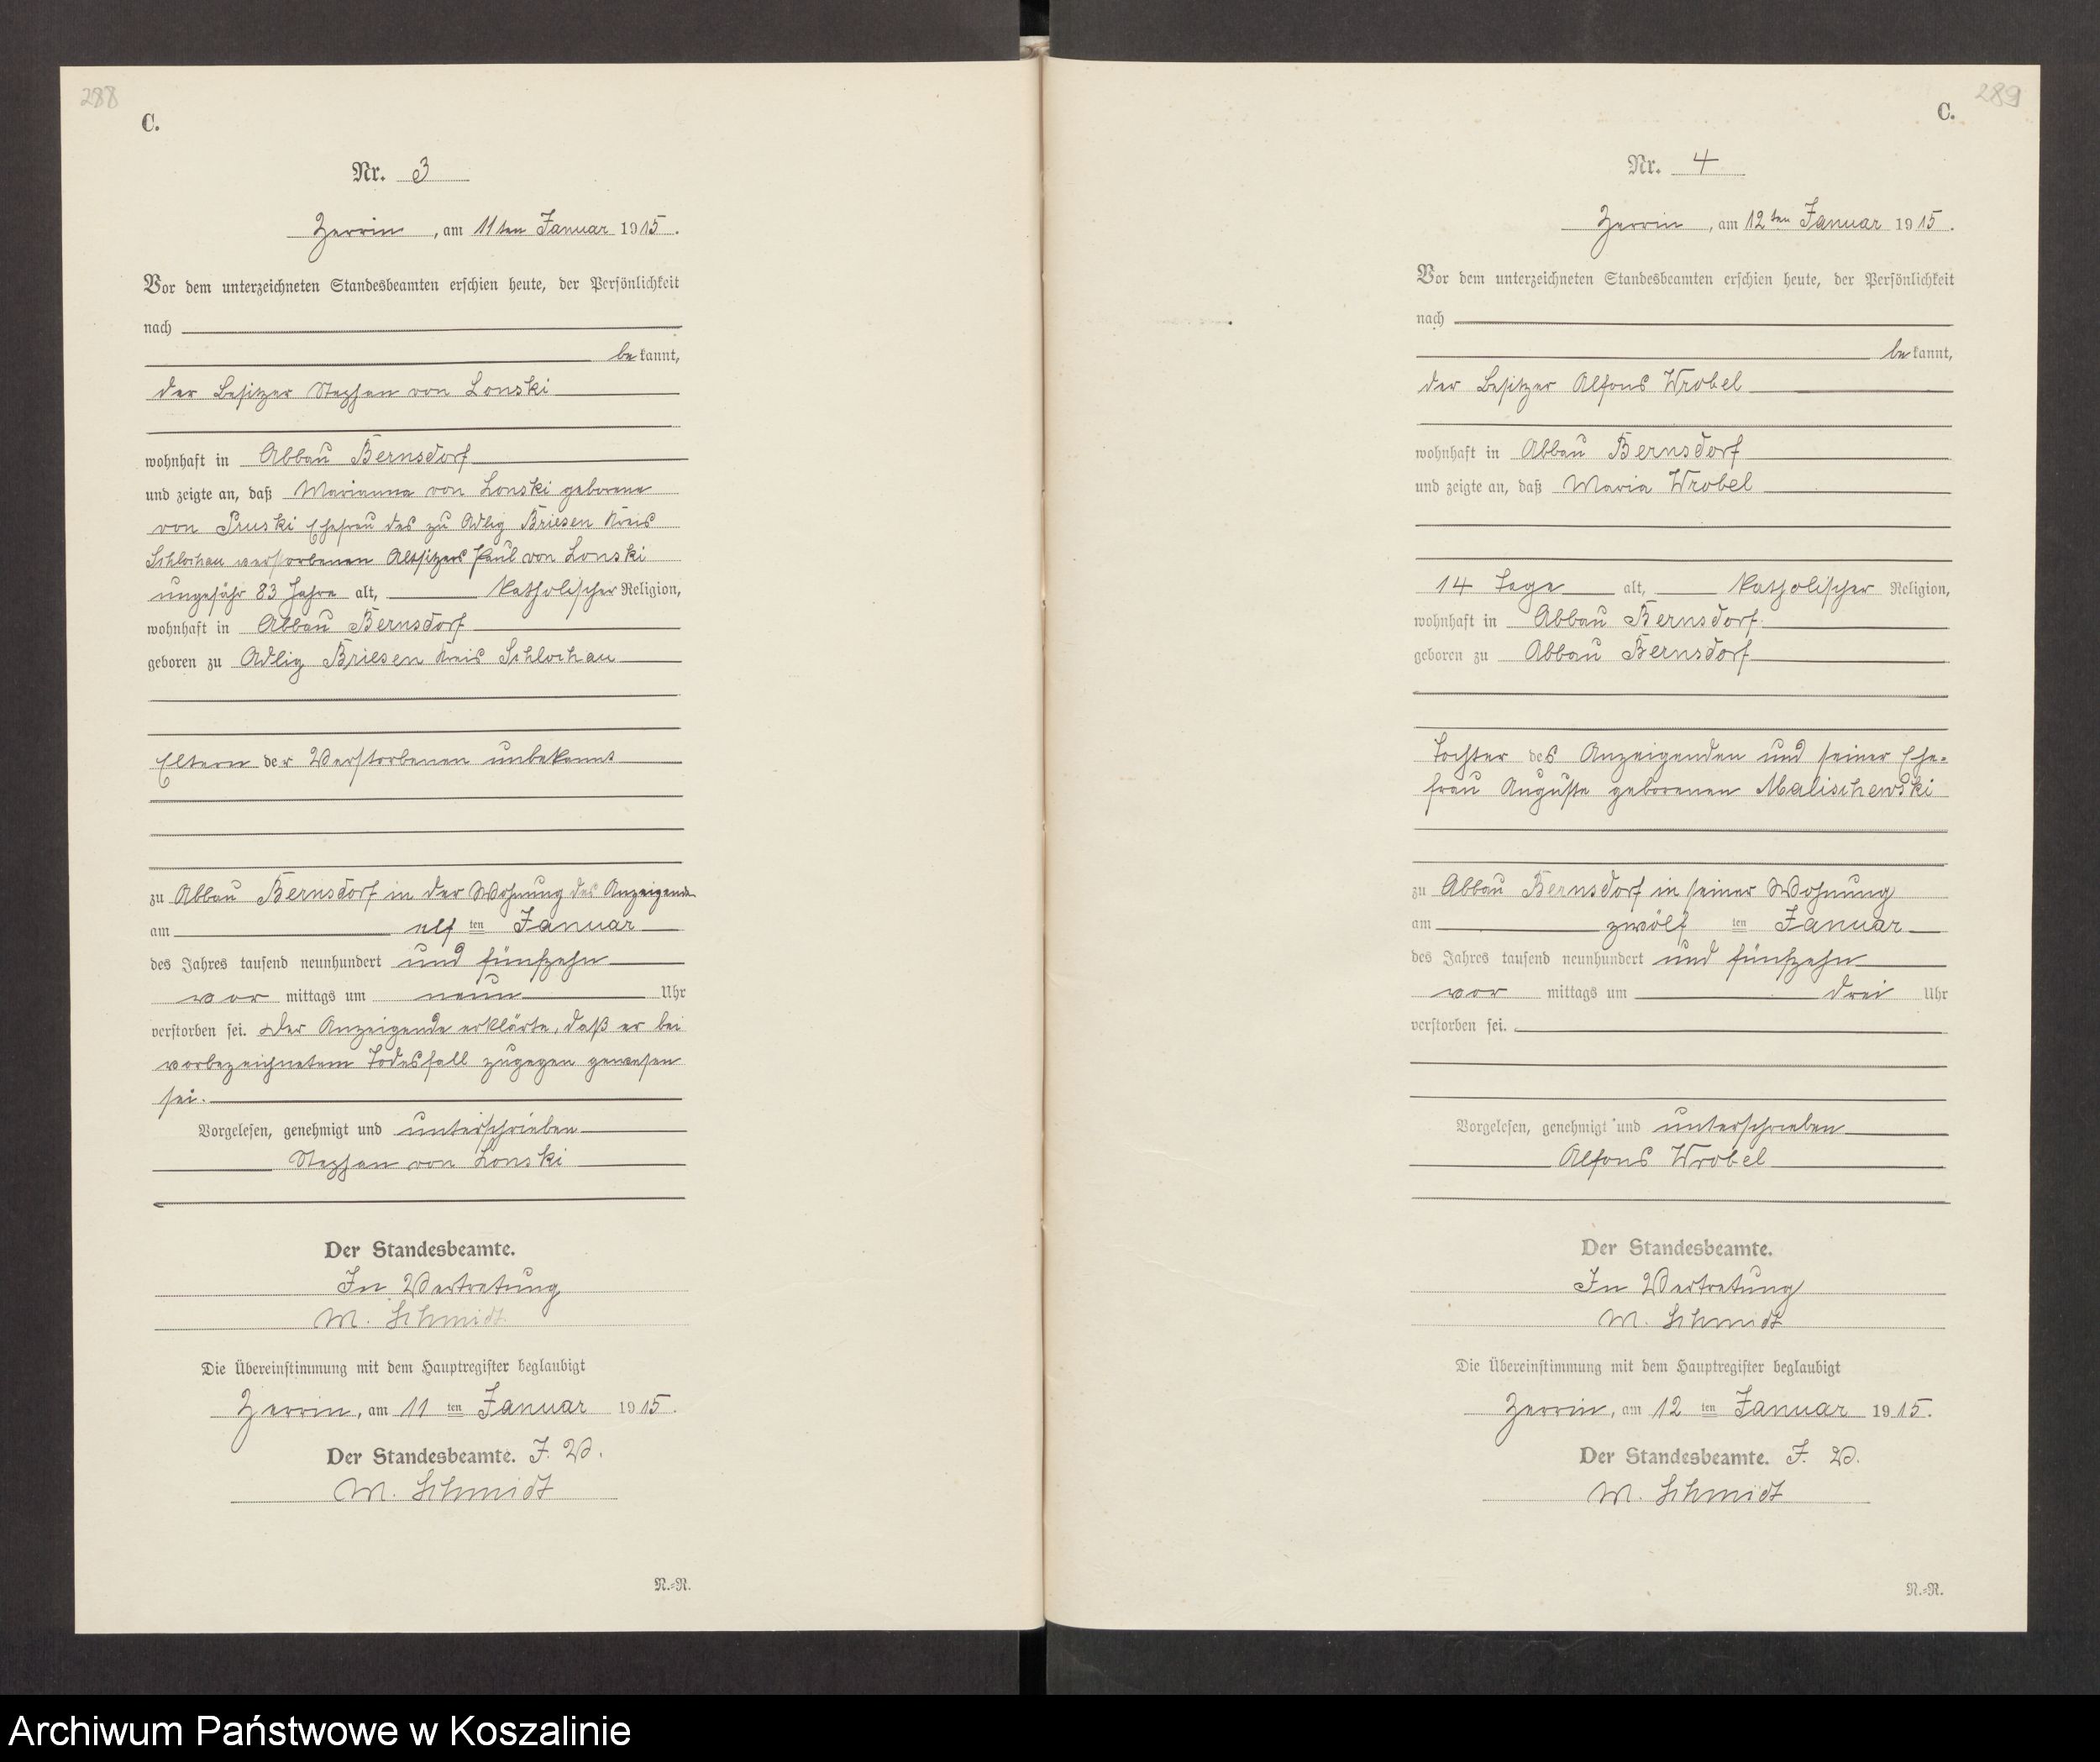 288
C.
Nr. 3
Zerrin, am 11ten Januar 1915.
Vor dem unterzeichneten Standesbeamten erschien heute, der Persönlichkeit
nach
bekannt,
der Besitzer Stephan von Lonski
wohnhaft in Abbau Bernsdorf
und zeigte an, daß Marianna von Lonski geborene
von Pruski Ehefrau des zu Adlig Briesen Kreis
Schlochau verstorbenen Altsitzers Paul von Lonski
ungefähr 83 Jahre alt, katholischer Religion,
wohnhaft in Abbau Bernsdorf
geboren zu Adlig Briesen Kreis Schlochau
Eltern der Verstorbenen unbekannt
zu Abbau Bernsdorf in der Wohnung des Anzeigenden
am elf ten Januar
des Jahres tausend neunhundert und fünfzehn
vor mittags um neun Uhr
verstorben sei. Der Anzeigende erklärte, daß er bei
vorbezeichnetem Todesfall zugegen gewesen
sei.
Vorgelesen, genehmigt und unterschrieben
Stephan von Lonski
Der Standesbeamte.
In Vertretung
M. Schmidt
Die Übereinstimmung mit dem Hauptregister beglaubigt
Zerrin, am 11 ten Januar 1915.
Der Standesbeamte. J. V.
M. Schmidt
N.=R.
289
C.
Nr. 4
Zerrin, am 12ten Januar 1915.
Vor dem unterzeichneten Standesbeamten erschien heute, der Persönlichkeit
nach
bekannt,
der Besitzer Alfons Wrobel
wohnhaft in Abbau Bernsdorf
und zeigte an, daß Maria Wrobel
14 Tage alt, katholischer Religion,
wohnhaft in Abbau Bernsdorf
geboren zu Abbau Bernsdorf
Tochter des Anzeigenden und seiner Ehe=
frau Auguste geborenen Malischewski
zu Abbau Bernsdorf in seiner Wohnung
am zwölf ten Januar
des Jahres tausend neunhundert und fünfzehn
vor mittags um drei Uhr
verstorben sei.
Vorgelesen, genehmigt und unterschrieben
Alfons Wrobel
Der Standesbeamte.
In Vertretung
M. Schmidt
Die Übereinstimmung mit dem Hauptregister beglaubigt
Zerrin, am 12 ten Januar 1915.
Der Standesbeamte. J. V.
M. Schmidt
N.=R.
Archiwum Państwowe w Koszalinie